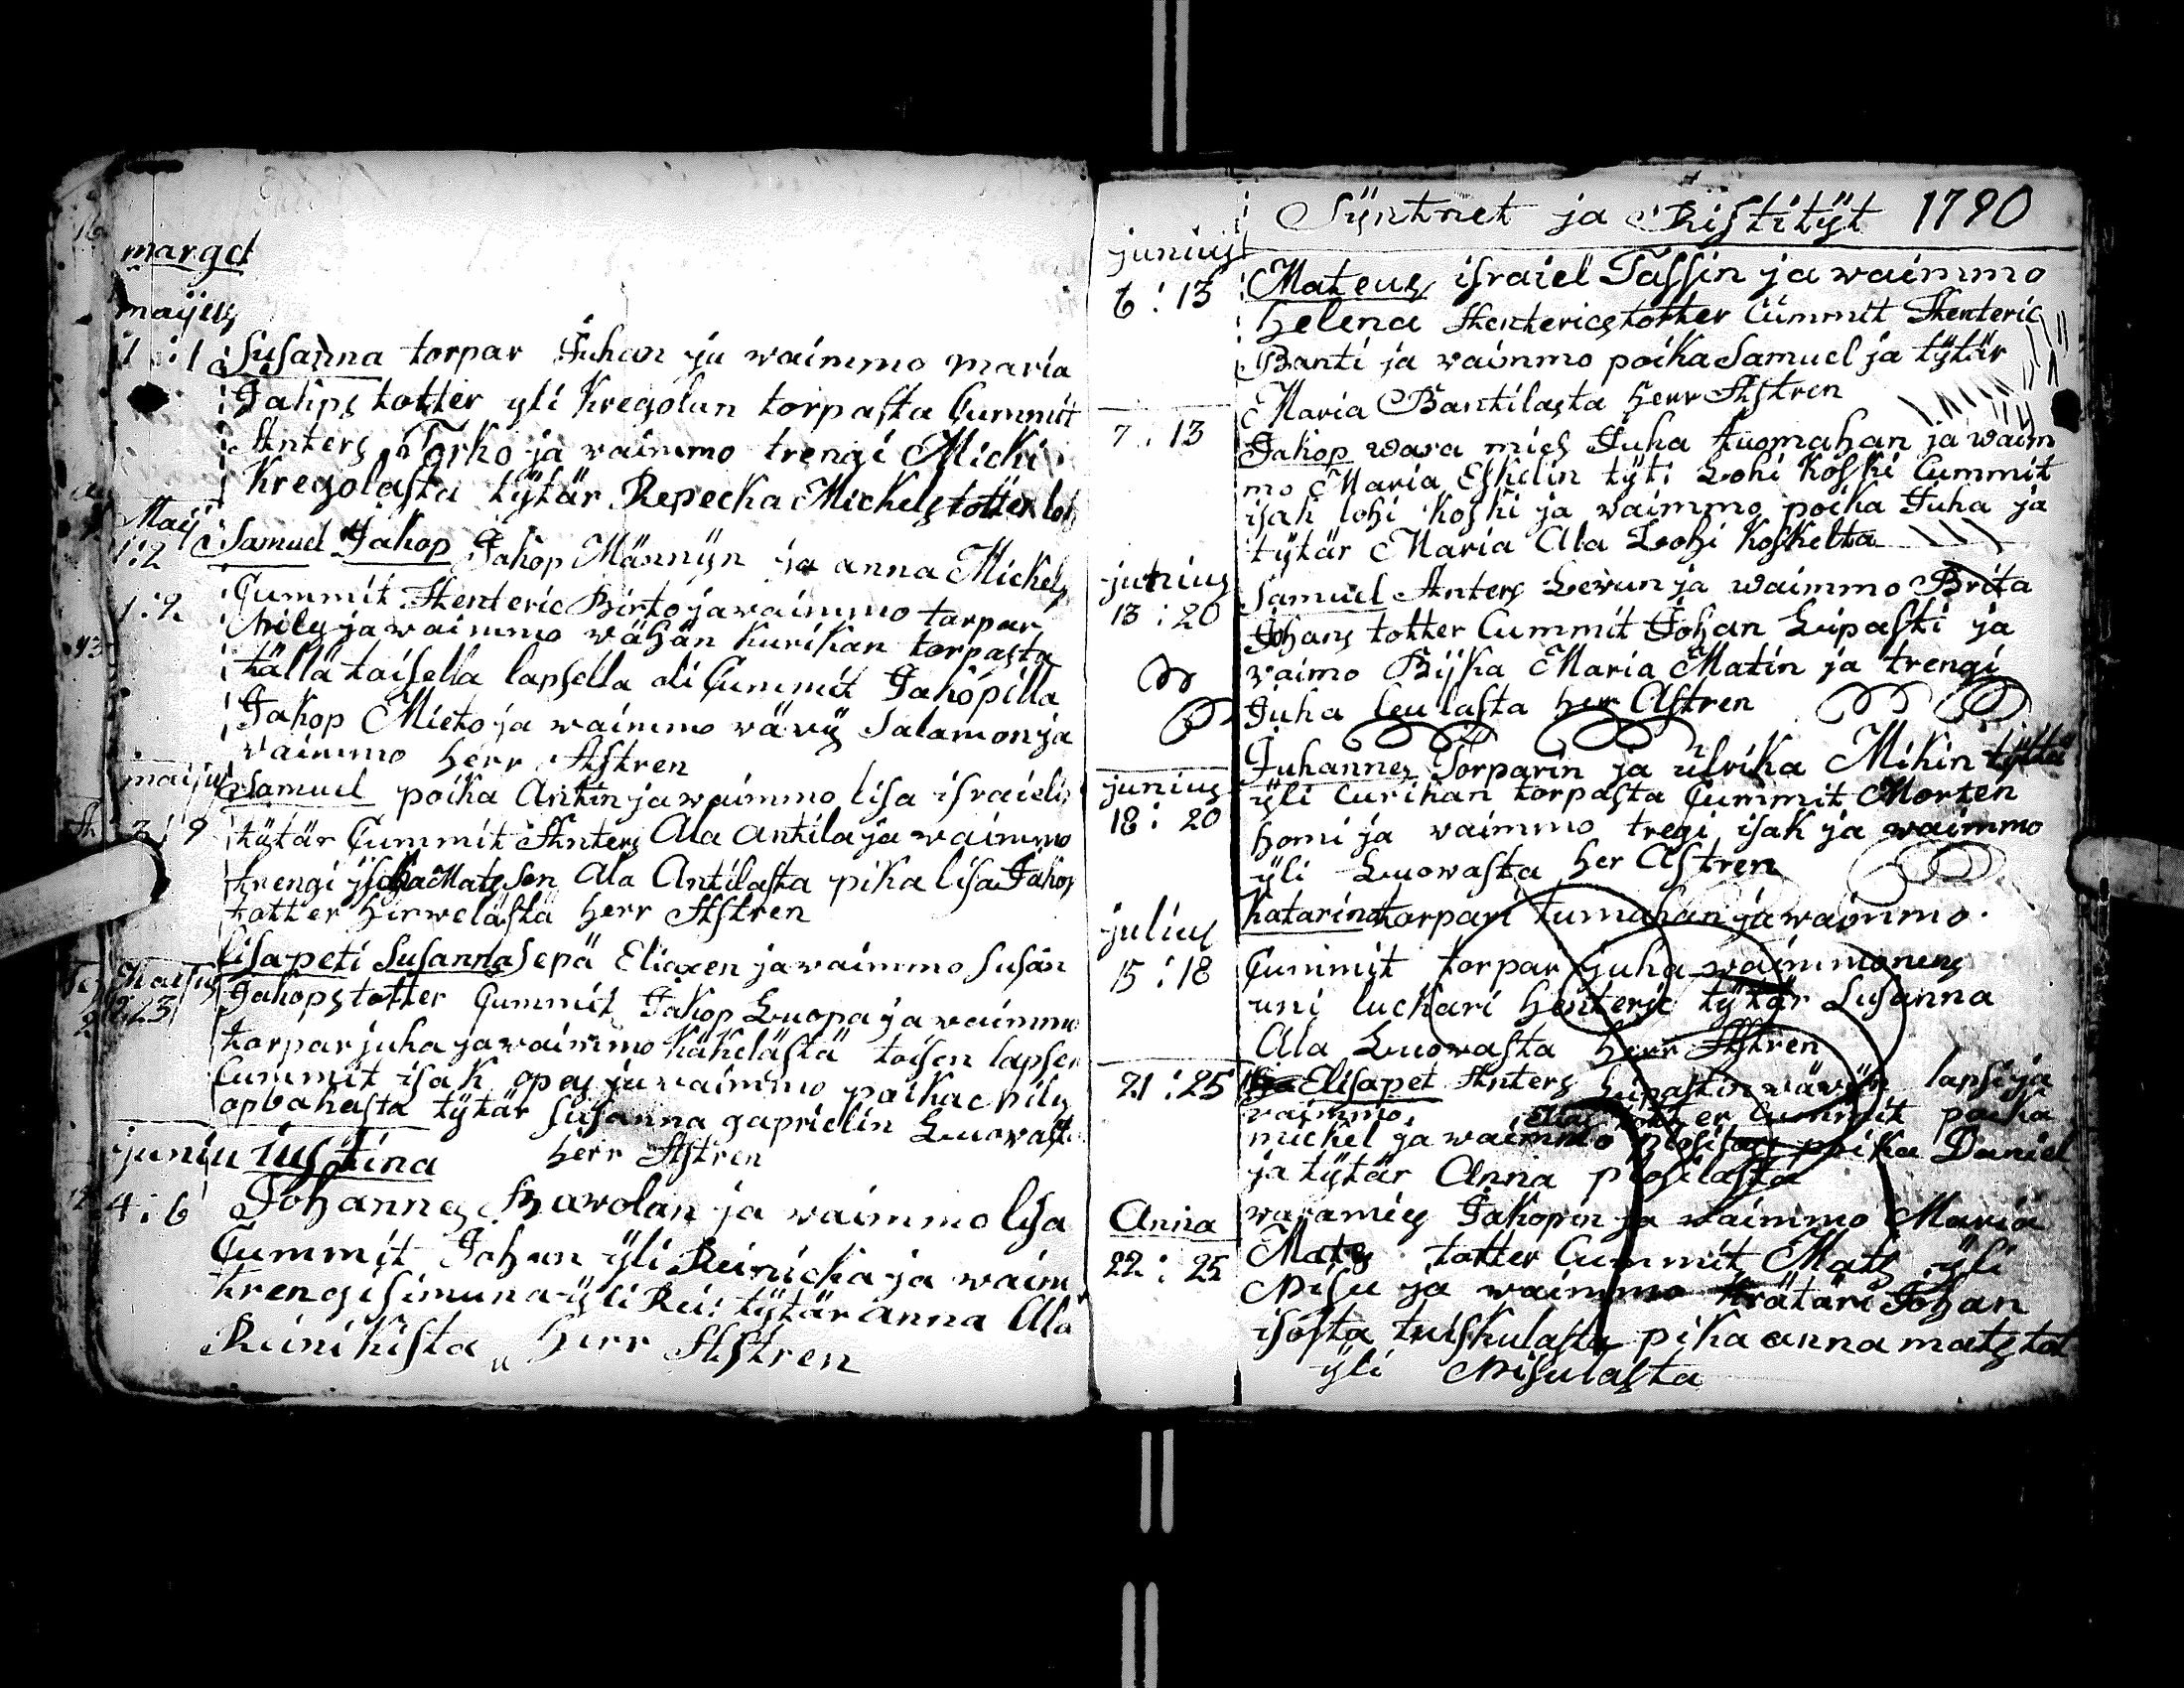 margct
maijus
1 : 1 Susanna torpar Juhan ja waimmo maria
Jakops totter yli Kregolan torpasta Cummit
Anters Torko ja waimmo trengi Micki
Kregolasta tÿtär Repecka Mickels totter
Maij
1:2 Samuel Jakop Jakop Männÿn ja anna Mickels
1:2 Cummit Henteric Birko ja waimmo tarpar
Nils ja waimmo wähän Kurikan torpasta
tällä toisella lapsella oli Cummit Jakopilla
Jakop Mieto ja waimmo wäwÿ Salamon ja
waimmo herr Astren
maijus
3 : 9 Samuel poika Antin ja waimmo lisa israielin
tÿtär Cummit Anters Ala Antila ja waimmo
trengi Matsson Ala Antilasta pika lisa Jakop
totter hirwelästä herr Astren
Maijus
23 lisapeti Susanna Sepä Eliaxen ja waimmo Susan
Jakops totter Cummit Jakop Luopa ja waimmo
torpar juha ja waimmo Käkelästä toisen lapsen
Cummit isak opas ja waimmo poika nils
opbahasta tÿtär Susanna gaprielin Luowasta
herr Astren
junius iustina
4 : 6 Johannes Hawolan ja waimmo lisa
Cummit Johan ÿli Reinicka ja waim
trengi simuna ÿli Rei: tÿtär anna Ala
Reinikista " herr Astren
Sÿntnet ja Ristitÿt 1790
junius
6 : 13 Mateus israiel Tassin ja waimmo
helena Henterics totter Cummit Henteric
Banti ja waimmo poika Samuel ja tÿtär
Maria Bantilasta herr Astren
7 : 13 Jakop wara mies Juha tuomahan ja waim
mo Maria Eskelin tÿt: Lohi Koski Cummit
isak lohi koski ja waimmo poika Juha ja
tÿtär Maria Ala Lohi Koskelta
junius
13 : 20 Samuel Anters Lewun ja waimmo Brita
Johans totter Cummit Johan Lipasti ja
waimo Bijka Maria Matin ja trengi
Juha leulasta her Astren
junius
18 : 20 Juhannes Torparin ja ulrika Mikin tÿttä
ÿli Curikan torpasta Cummit Morten
homi ja waimmo tregi isak ja waimmo
ÿli Luowasta her Astren
julius
15 : 18 Katarina torpari tumahan ja waimmo.
Cummit torpar juha waimmonens
uni luckari henteric tÿtär Susanna
Ala Luowasta herr Astren
21 : 25 Elisapet Anters Lipastin wäwÿn lapsi ja
waimmo, Elias totter Cummit poika
mickel ja waimmo plosilast poika Daniel
ja tÿtär Anna plosilasta
Anna
22 : 25 waramies Jakopin ja waimmo Maria
Mats totter Cummit Mats ÿli
Nisu ja waimmo Krätäri Johan
isosta tuiskulasta pika anna mats tot
ÿli Nisulasta